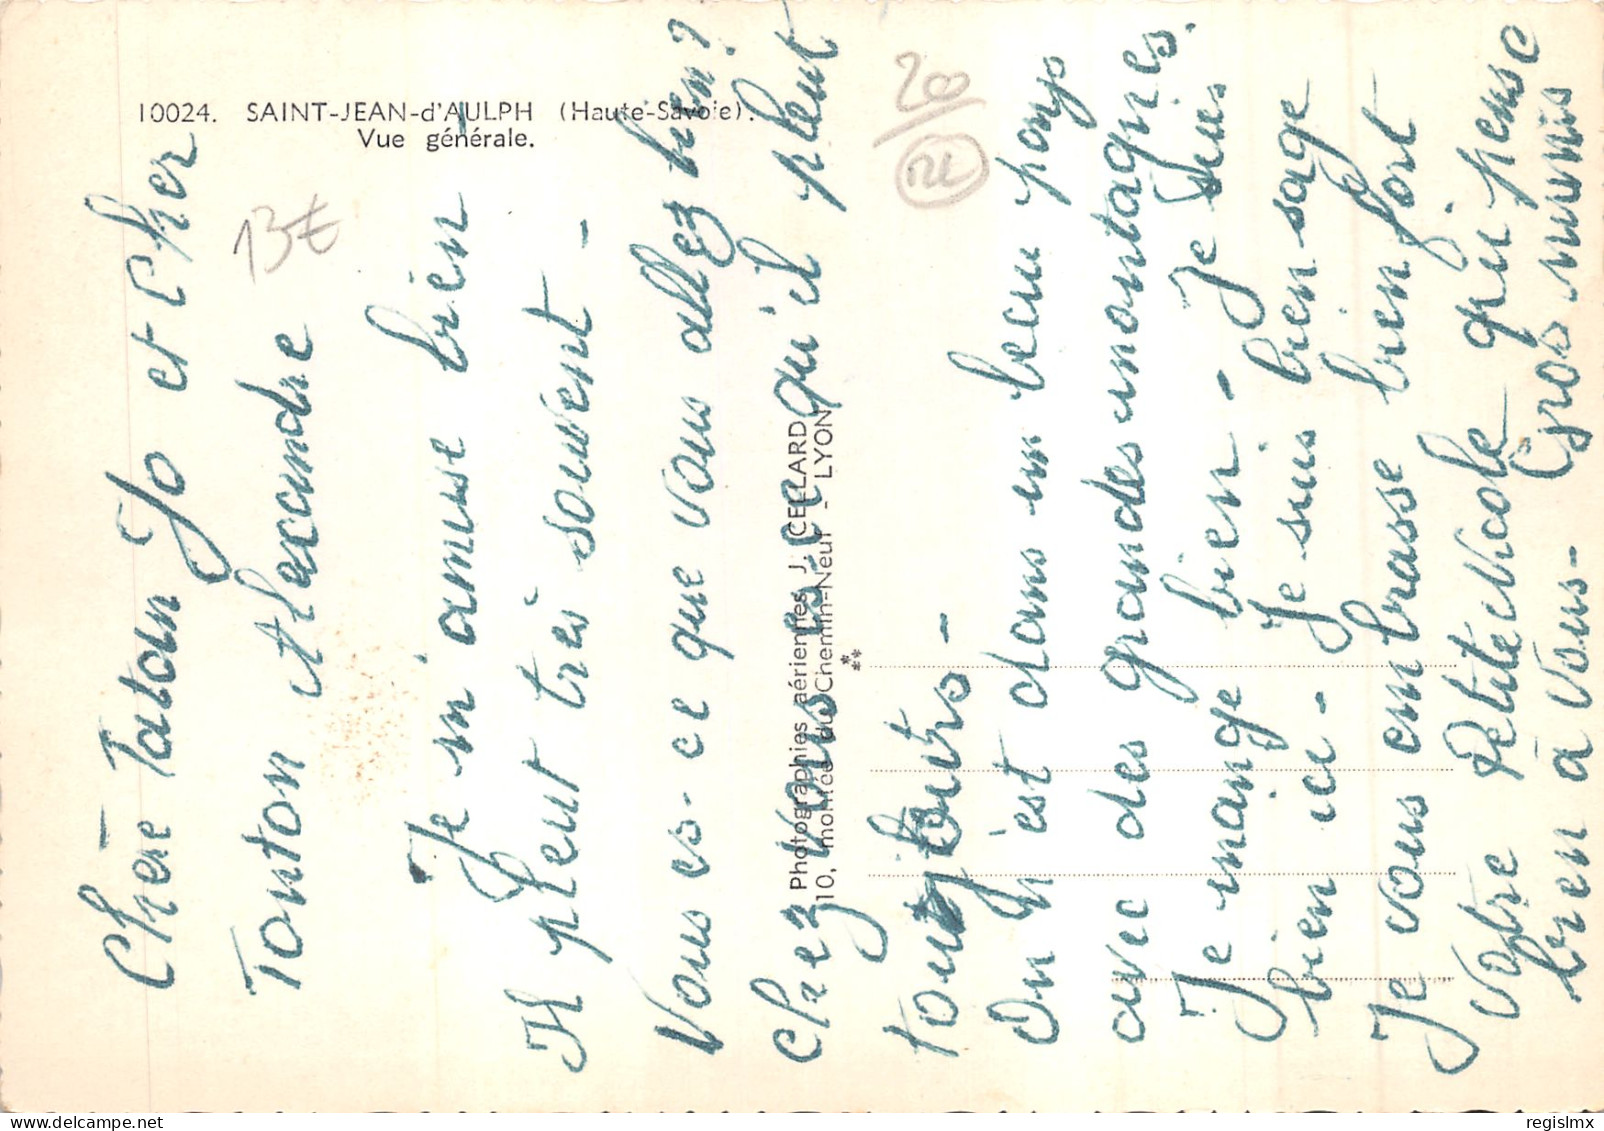 10024. SAINT-JEAN-d'AULPH (Haute-Savoie).
Vue générale.
13€
200
Photographies aériennes J. CELLARD
10, montée du Chemin-Neuf - LYON
Chère Tatan Jo et Cher
Tonton Alexandre
Je m'amuse bien
Il pleut très souvent -
Vous es-ce que vous allez bien?
Chez vous es-ce qu'il pleut
toujours -
On n'est dans un beau pays
avec des grandes montagnes.
Je mange bien - Je suis
bien ici - Je suis bien sage
Je vous embrasse bien fort
Votre petite Nicole qui pense
bien à vous - Gros mimis
regislmx